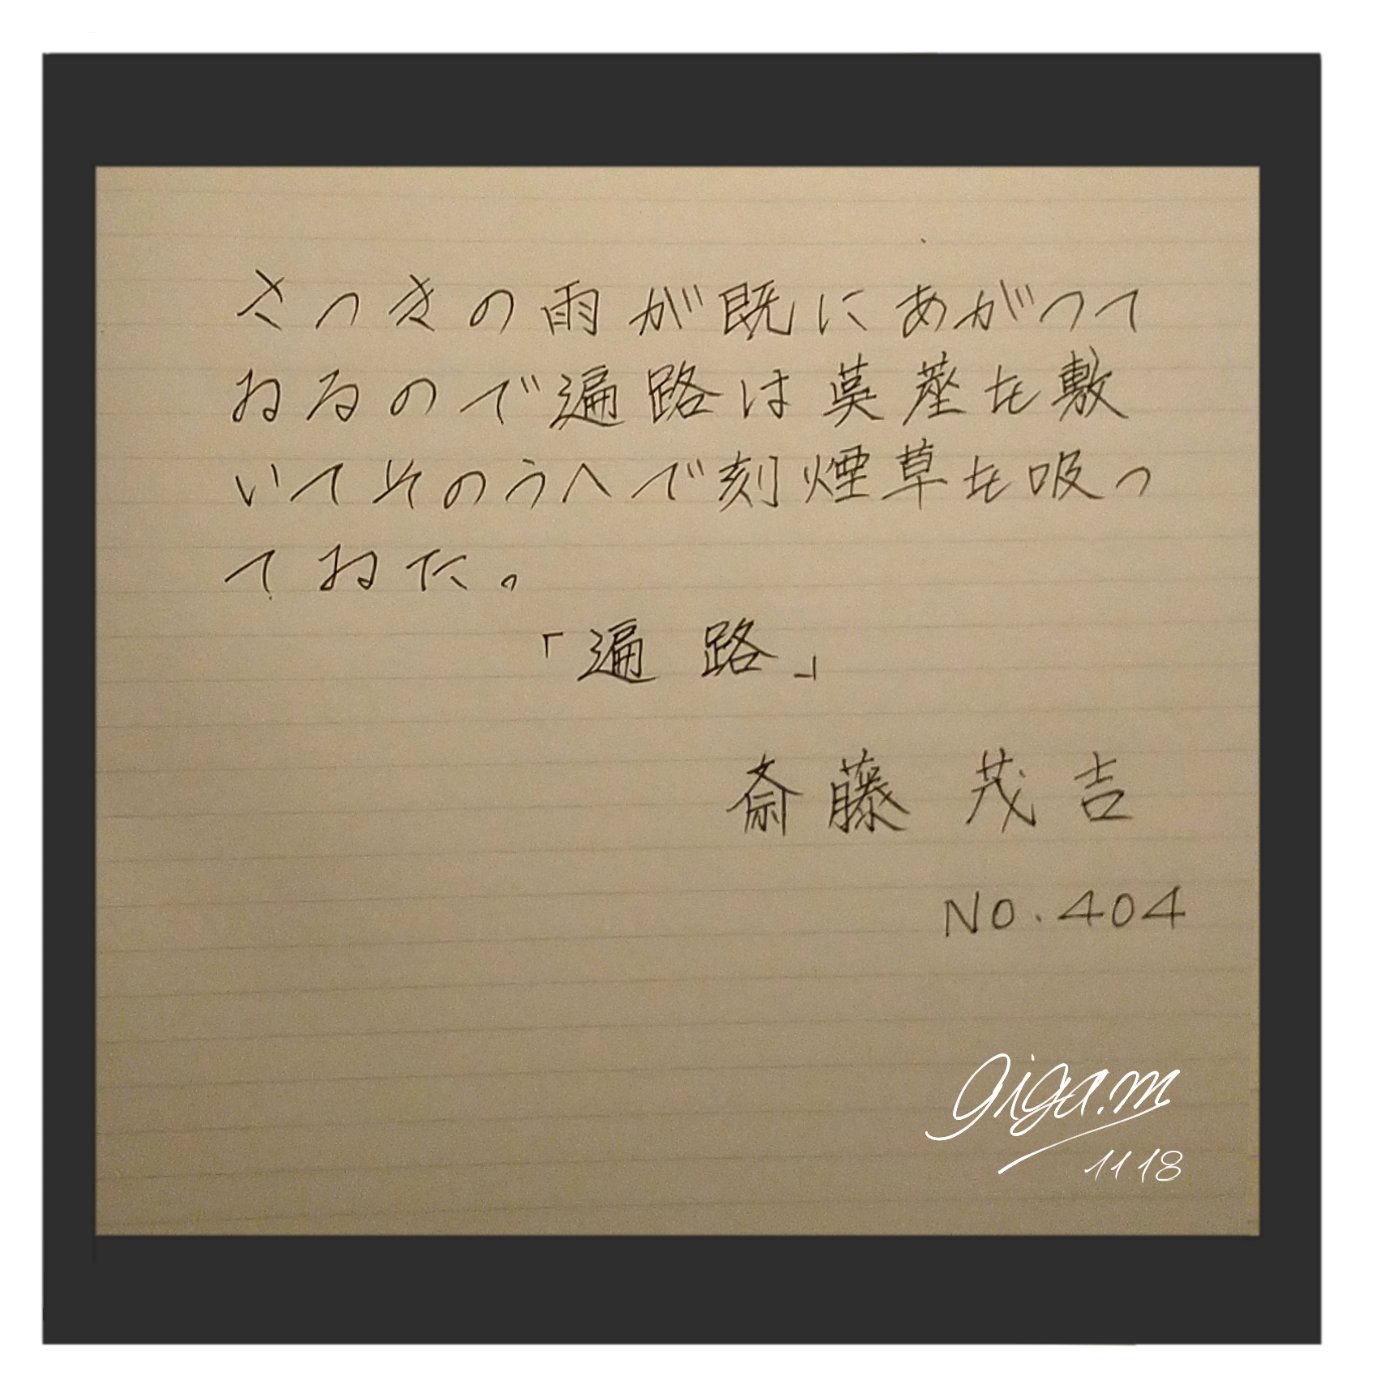 さっきの雨が既にあがつて
ゐるので遍路は茣蓙を敷
いてそのうへで刻煙草を吸っ
てゐた。
「遍路」
斎藤 茂吉
NO.404
giga.m
1118